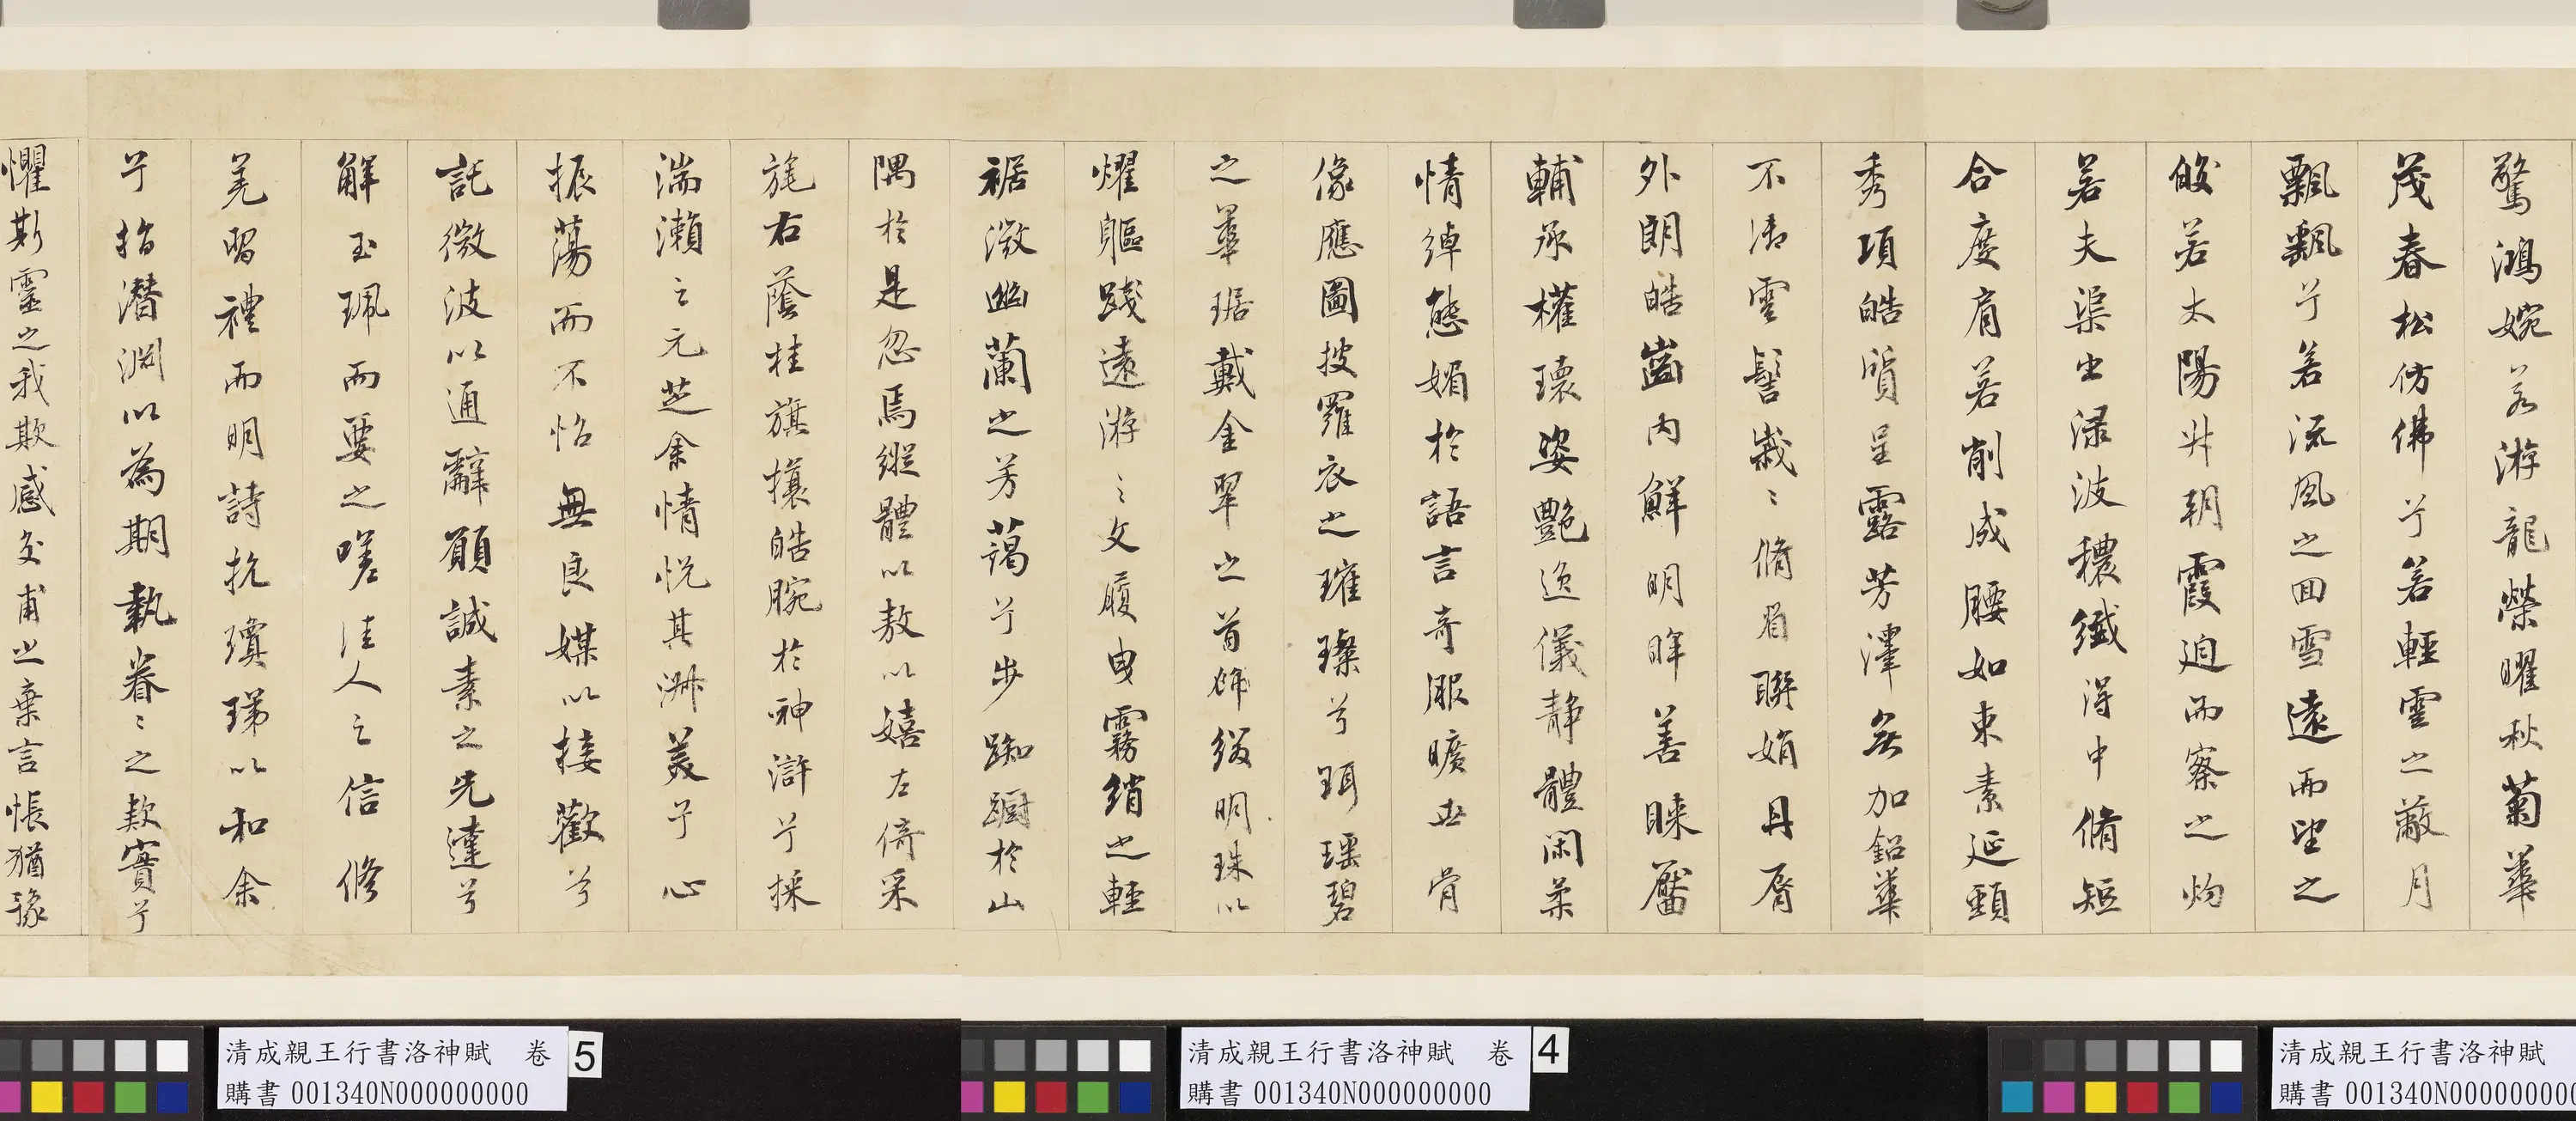 驚鴻婉若游龍榮曜秋菊華
茂春松仿佛兮若輕雲之蔽月
飄飄兮若流風之回雪遠而望之
皎若太陽升朝霞迫而察之灼
若夫渠出淥波穠纖得中脩短
合度肩若削成腰如束素延頸
秀項皓質呈露芳澤無加鉛華
不御雲髻峩〻脩眉聯娟丹脣
外朗皓齒內鮮明眸善睞靨
輔承權瓌姿艷逸儀静體閑柔
情綽態媚於語言奇服曠世骨
像應圖披羅衣之璀璨兮珥瑶碧
之華琚戴金翠之首飾綴明珠以
燿軀踐遠游〻文履曳霧綃之輕
裾微幽蘭之芳藹兮步踟躕於山
隅於是忽焉縱體以敖以嬉左倚采
旄右蔭桂旗攘皓腕於神滸兮採
湍瀨之元芝余情悦其淑美兮心
振蕩而不怡無良媒以接歡兮
託微波以通辭願誠素之先達兮
解玉珮而要之嗟佳人之信修
羌習禮而明詩抗瓊珶以和余
兮指潛淵以為期執眷〻之款實兮
懼斯靈之我欺感交甫之棄言悵猶豫
清成親王行書洛神賦 卷 5
購書 001340N000000000
清成親王行書洛神賦 卷 4
購書 001340N000000000
清成親王行書洛神賦
購書 001340N00000000